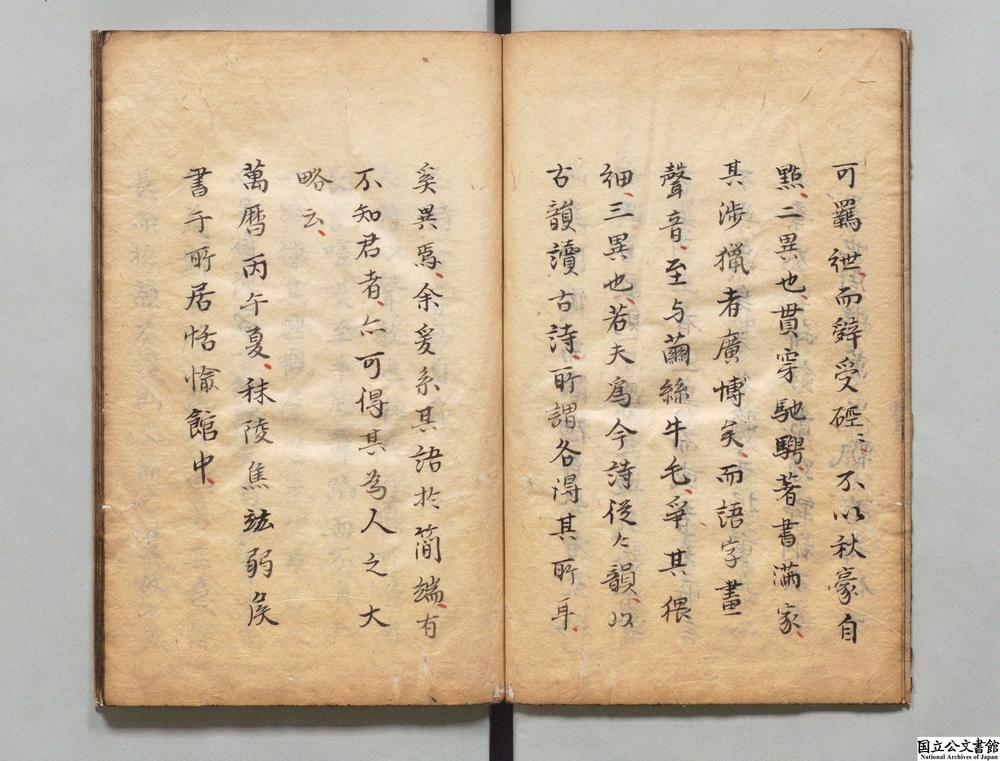 可羈紲、而辭受硜〻、不以秋豪自
點、二異也、貫穿馳騁、著書滿家、
其涉獵者廣博矣、而語字畫
聲音、至与繭絲牛毛、爭其猥
細、三異也、若夫爲今詩從今韻、以
古韻讀古詩、所謂各得其所耳、
奚異焉、余爰系其語於簡端、有
不知君者、亦可得其為人之大
略云、
萬曆丙午夏、秣陵焦竑弱侯
書于所居恬愉館中、
国立公文書館
National Archives of Japan